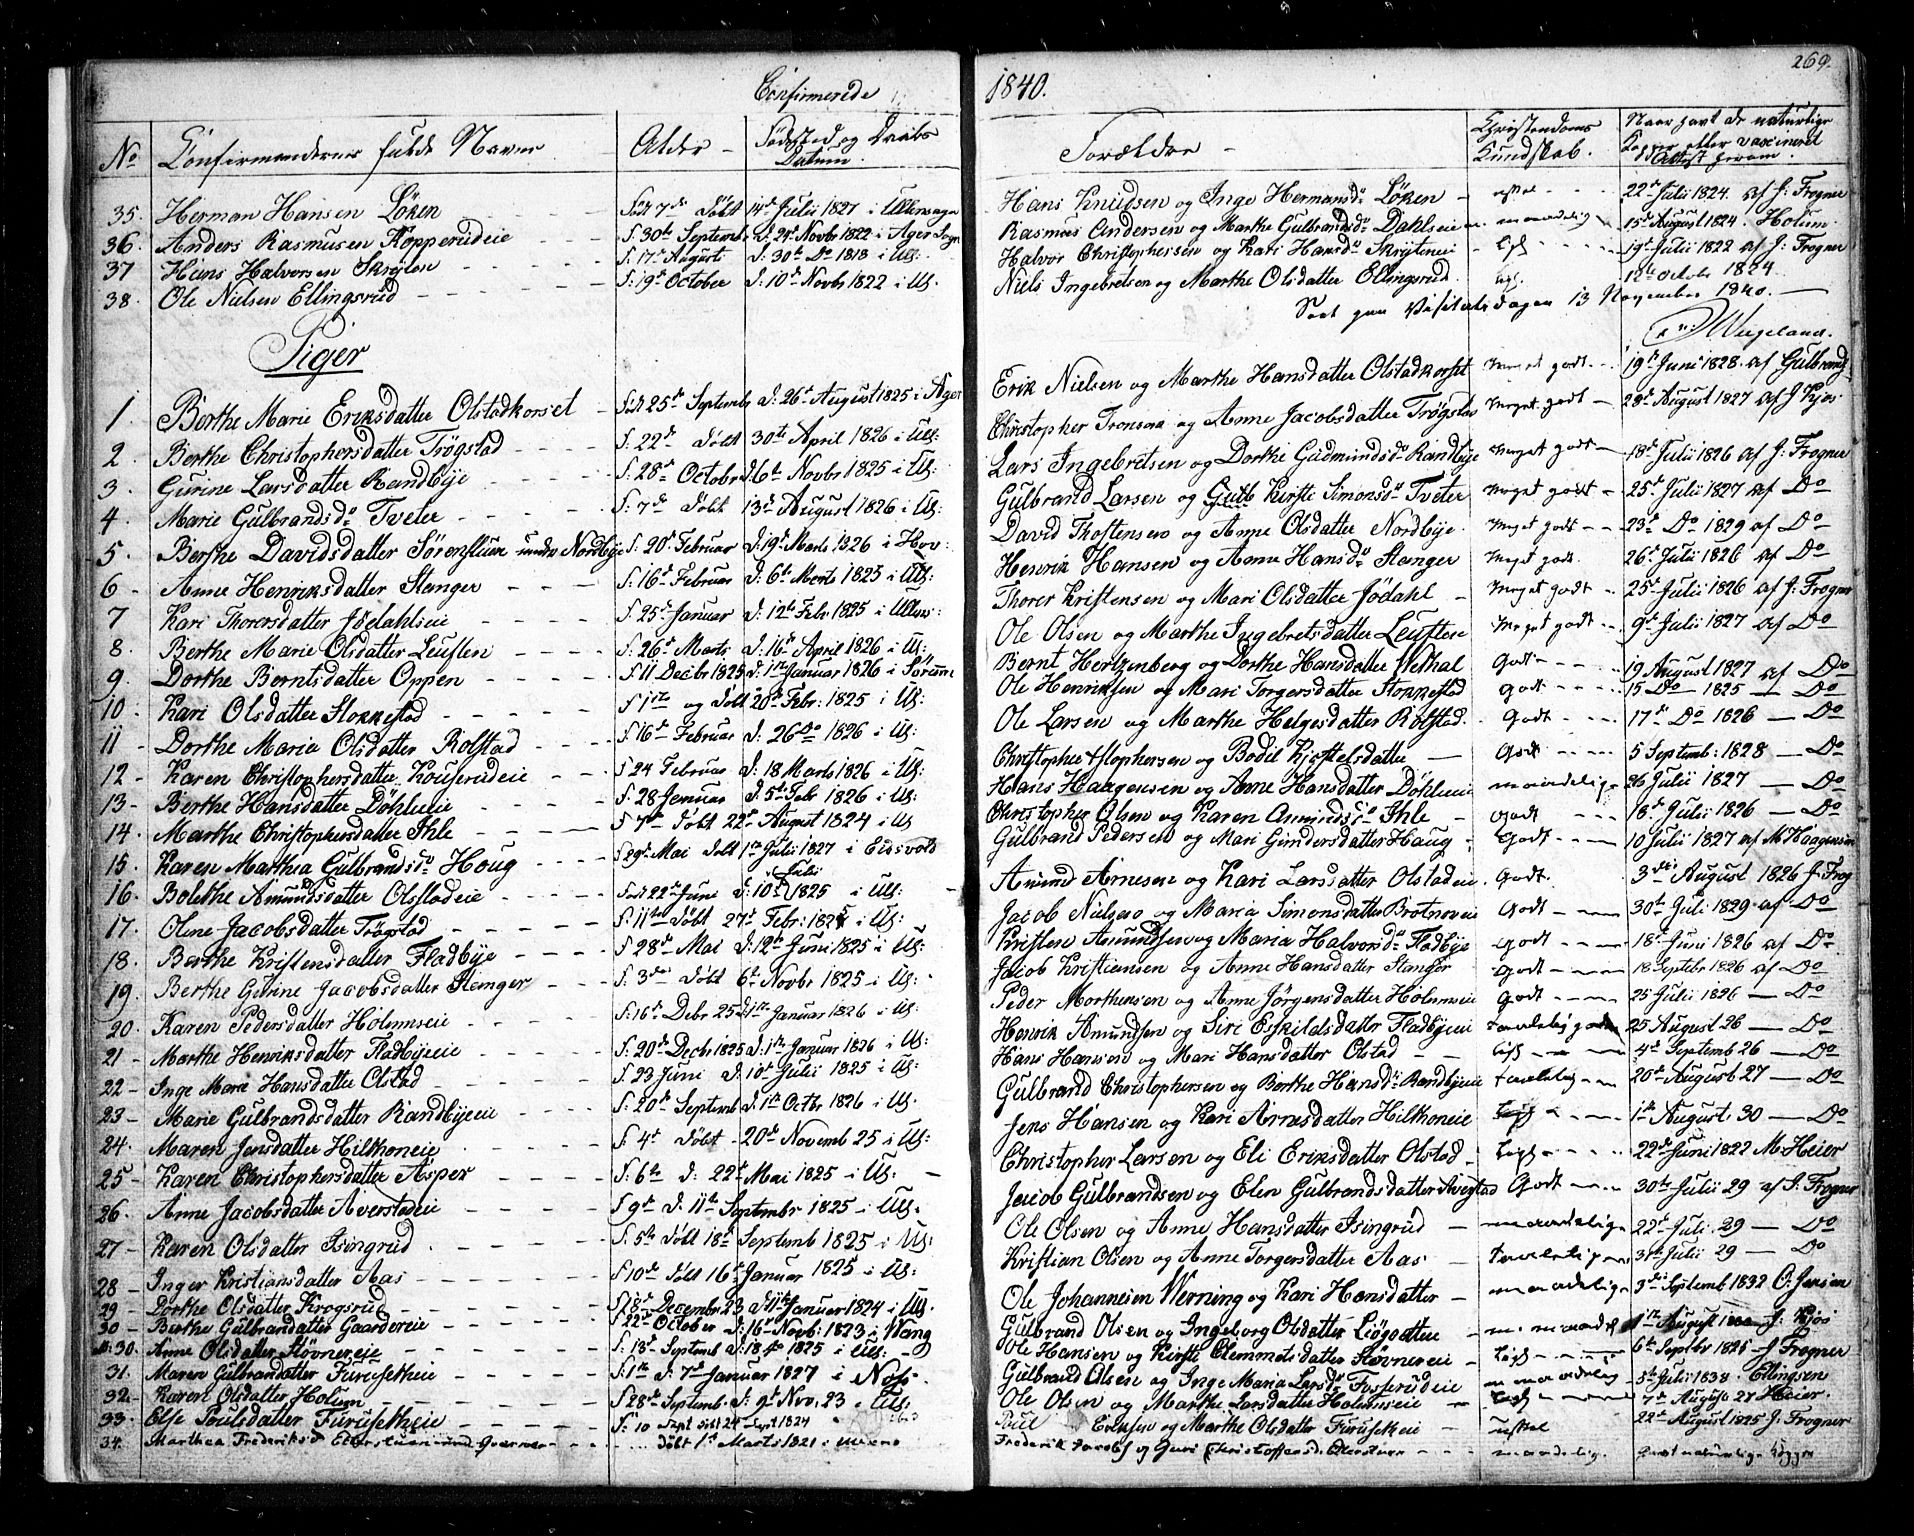 269.
Confirmerede 1840.
No Confirmandernes fulde Navne Alder Fødsted og Daabs Datum. Forældre Christendoms Kundskab. Naar havt de naturlige Kopper eller vaccineret
35. Herman Hansen Löken Född 7de Döbt 14de Julii 1827 i Ullensager Hans Knudsen og Inge Hermansd: Löken ussel 22de Julii 1824 af J: Frogner
36. Anders Rasmusen Kopperudeie F: 30te Septembr D: 24de Novbr 1822 i Ager Sogn Rasmus Andersen og Marthe Gulbrandsdr Dahleie maadelig 15de August 1824. Holum.
37 Hans Halvorsen Skrylen F: 17de August D: 30te Do 1818 i Ull: Halvor Christophersen og Kari Hansdr Skryteneie 19de Julii 1822 af J: Frogner
38. Ole Nielsen Ellingsrud F: 19de October D: 10de Novbr 1822 i Ull: Niels Ingebretsen og Marthe Olsdatter Ellingsrud 12te Octob: 1824
Seet paa Visitatsdagen 13 November 1840.
Wergeland.
Piger
1 Berthe Marie Eriksdatter Olstadkorset Född 25de Septembr D. 26de August 1825 i Ager Erik Nielsen og Marthe Hansdatter Olstadkorset Meget godt 19de Juni 1828 af Gulbrand
2 Berthe Christophersdatter Trögstad F: 22de Döbt 30te April 1826 i Ull: Christopher Tronsen og Anne Jacobsdatter Trögstad Meget godt 28de August 1827 af J Kjos
3. Gurine Larsdatter Randbye F: 28de October D 6te Novbr 1825 i Ull: Lars Ingebretsen og Dorthe Gudmundsdr Randbye Meget godt 18de Julii 1826 af J: Frogner
4. Marie Gulbrandsdr Tveter F: 7de Döbt 13de August 1826 i Ull: Gulbrand Larsen og Kirsti Simonsdr Tveter Meget godt 25de Julii 1827 af Do
5. Berthe Davidsdatter Sörensstuen under Nordbye F: 20de Februar D: 19de Marts 1826 i Hov: David Thostensen og Anne Olsdatter Nordbye Meget godt 23de Do 1829 af Do
6 Anne Henriksdatter Stenger F: 16de Februar D: 6te Marts 1825 i Ull: Henrik Hansen og Anne Hansdr Stanger Meget godt 26de Julii 1826 af Do
7 Kari Thorersdatter Jödahlseie F: 25de Januar D: 12te Febr 1825 i Ullens: Thorer Kristensen og Mari Olsdatter Jödahl Meget godt 25de Julii 1826 af J: Frogner
8. Berthe Marie Olsdatter Leuften F: 26de Marts D: 16de April 1826 i Ull: Ole Olsen og Marthe Ingebretsdatter Leuften Meget godt 9de Julii 1827 af Do
9. Dorthe Berntsdatter Oppen F 11 Decbr 1825 D: 1ste Januar 1826 i Sörum Bernt Hertzenberg og Dorthe Hansdatter Wethal Godt 19 August 1827 af Do
10. Kari Olsdatter Stokkestad F 1ste og Döbt 20de Febr: 1825 i Ull: Ole Henriksen og Mari Torgersdatter Stokkestad Godt 15 Do 1825 Do
11 Dorthe Maria Olsdatter Rolstad F 16de Februar D: 26 Do 1826 i Ull: Ole Larsen og Marthe Helgesdatter Rolstad Godt 17de Do 1826 Do
12 Karen Christophersdatter Kouserudeie F 24 Februar D: 18 Marts 1826 i Ull: Christopher Christophersen og Bodil Kjostelsdatter Godt 5 Septemb: 1828 Do
13. Berthe Hansdatter Döhleeie F: 28 Januar D: 5te Febr 1826 i Ull: Hans Haagensen og Anne Hansdatter Döhleeie maadelig 26 Julii 1827 Do
14. Marthe Christophersdatter Ihle F 7de Döbt 22de August 1824 i Ull Christopher Olsen og Karen Amundsdr Ihle godt 18de Julii 1826 Do
15. Karen Marthea Gulbrandsdr Houg F 29de Mai Döbt 1ste Julii 1827 i Eidsvold Gulbrand Pedersen og Mari Gundersdatter Haug Godt 10 Julii 1827 af M: Haagensen
16. Bolethe Amundsdatter Olstadeie Född 22de Juni D: 10de Julii 1825 i Ull: Amund Arnesen og Kari Larsdatter Olstadeie Godt. 3die August 1826 J Frog
17. Oline Jacobsdatter Trögstad F: 11te Döbt 27de Febr: 1825 i Ull: Jacob Nielsen og Maria Simonsdatter Brotnoeie Godt 30te Juli 1829 af Do
18. Berthe Kristensdatter Fladbye F 28de Mai D: 12te Juni 1825 i Ull: Kristen Amundsen og Maria Halvorsdr Fladbye Godt 18de Juni 1826 af Do
19. Berthe Gurine Jacobsdatter Stenger F: 3die Döbt 6te Novbr 1825 i Ull: Jacob Kristiansen og Anne Hansdatter Stanger Godt 18 Septbr 1826 af Do
20. Karen Pedersdatter Holumseie F: 16de Debr 25 D: 1ste Januar 1826 i Ull Peder Morthensen og Anne Jörgensdatter Holumseie Godt 25 Julii 1826 Do
21. Marthe Henriksdatter Fladbyeeie F: 20de Decbr 1825 D: 1ste Januar 1826 i Ull: Henrik Amundsen og Siri Eskildsdatter Fladbyeeie Taalelig godt 25 August 26 Do
22 Inge Marie Hansdatter Olstad F 23 Juni D 10de Julii 1825 i Ull: Hans Hansen og Mari Hansdatter Olstad 4de Septemb 26 Do
23 Marie Gulbrandsdatter Randbyeeie F: 20de Septemb D: 1ste Octbr 1826 i Ull: Gulbrand Christophersen og Berthe Hansdr Randbyeeie taalelig 20de August 27 Do
24. Maren Jensdatter Hilkoneie F: 4de Döbt 20de Novemb 25 i Ull: Jens Hansen og Kari Arnesdatter Hilkoneie 1ste August 30 Do
25 Karen Christophersdatter Asper F: 6te D: 22de Mai 1825 i Ull: Christopher Larsen og Eli Eriksdatter Olstad 22de Juni 1822 M. Heier
26. Anne Jacobsdatter Averstadeie F 9de D: 11te Septembr 1825 i Ull. Jacob Gulbrandsen og Elen Gulbrandsdatter Avestad Godt 30te Julii 29 af J. Frogner
27 Karen Olsdatter Isingrud F: 5te Döbt 18de Septemb 1825 i Ull: Ole Olsen og Anne Hansdatter Isingrud maadelig 22de Juli 29 Do
28 Inger Kristiansdatter Aas F 10de Döbt 16de Januar 1825 i Ull: Kristian Olsen og Anne Torgersdatter Aas Taalelig 31te Julii 29 Do
29 Dorthe Olsdatter Krogsrud F 28de Decembr 23 D 11te Januar 1824 i Ull. Ole Johannesen Werning og Kari Hansdatter maadelig 3die Septemb 1832 O: Jensen
30 Berthe Gulbrandatter Gaardereie F 22de October D: 16de Novb: 1823 i Wang Gulbrand Olsen og Ingeborg Olsdatter maadel 1ste August J: Kjos
30. Anne Olsdatter Stövnereie F: 13de Septemb D: 18de 1825 i Ull: Ole Hansen og Kirsti Clemmetsdatter Stövnereie 6te Septbr 1825 J Frogner
31. Maren Gulbrandatter Furusetheie F 1ste D: 7de Januar 1827 i Næss. Gulbrand Olsen og Inge Maria Larsdr Fosserudeie maadelig 5te Juli 1838. Ellingsen
32. Karen Olsdatter Holum F 28de Septemb. D: 9de Nov: 23 i Ull: Ole Olsen og Marthe Larsdatter Holumseie 7de August 27 Heier.
33. Else Poulsdatter Furusetheie F: 10 Sept döbt 24 Sept 1824 Poul Evensen og Marthe Olsdatter Furusetheie usssel 22de August 1825 J. Frogner
34. Marthea Frederiksd döbt 1ste Marts 1821 i Frederik Jacobs og Guri Christoffersd: maadelig. havt naturlige Kopper